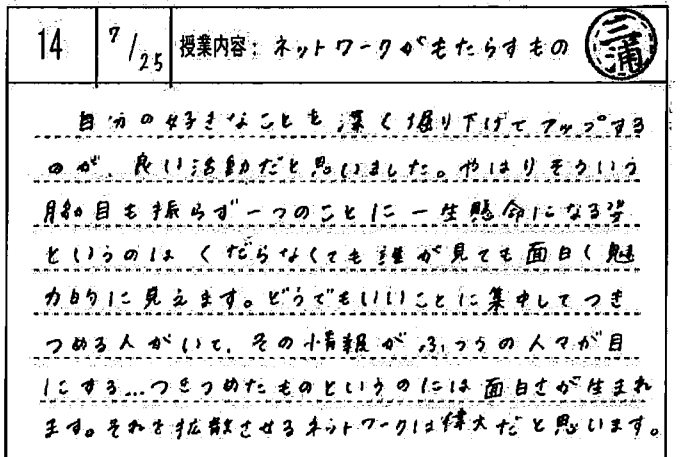 14 7/25 授業内容: ネットワークがもたらすもの 三浦
自分の好きなことを深く掘り下げてアップする
のが、良い活動だと思いました。やはりそういう
脇目も振らず一つのことに一生懸命になる姿
というのはくだらなくても誰が見ても面白く魅
力的に見えます。どうでもいいことに集中してつき
つめる人がいて、その情報がふつうの人々が目
にする...つきつめたものというのには面白さが生まれ
ます。それを拡散させるネットワークは偉大だと思います。